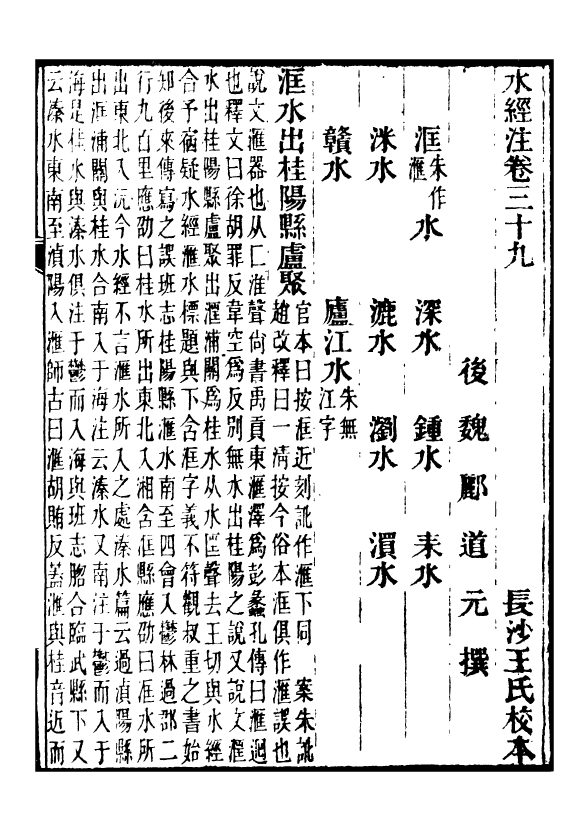 水經注卷三十九　長沙王氏校本
後魏酈道元撰
洭朱作滙水　深水　鍾水　耒水
洣水　漉水　瀏水　㵋水
贛水　廬江水朱無江字
洭水出桂陽縣盧聚
官本曰按洭近刻訛作滙下同　案朱訛
趙改釋曰一清按今俗本洭俱作滙誤也
說文滙器也从匚淮聲尚書禹貢東滙澤爲彭蠡孔傳曰滙迴
也釋文曰徐胡罪反韋空爲反別無水出桂陽之說又說文洭
水出桂陽縣盧聚出洭浦關爲桂水从水匡聲去王切與水經
合予窃疑水經滙水標題與下含洭字義不符觀叔重之書始
知後來傳寫之誤班志桂陽縣滙水南至四會入鬱林過郡二
行九百里應劭曰桂水所出東北入湘含洭縣應劭曰洭水所
出東北入沅今水經不言滙水所入之處溱水篇云過湞陽縣
出洭浦關與桂水合南入于海注云溱水又南注于鬱而入于
海是桂水與溱水俱注于鬱而入海與班志脗合臨武縣下又
云溱水東南至湞陽入滙師古曰滙胡賄反蓋滙與桂音近而